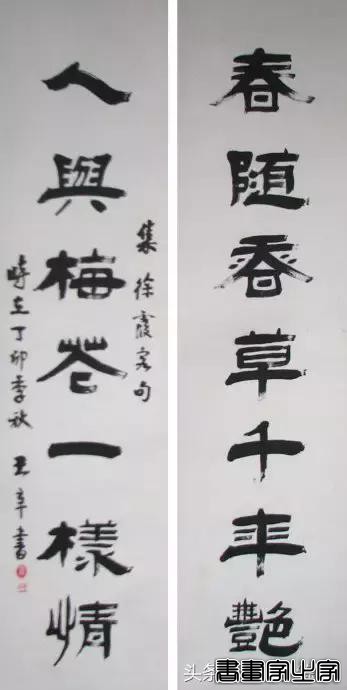 春随香草千年艷
人與梅花一樣情
集徐霞客句
時在丁卯季秋 書
头条
書畫家之家